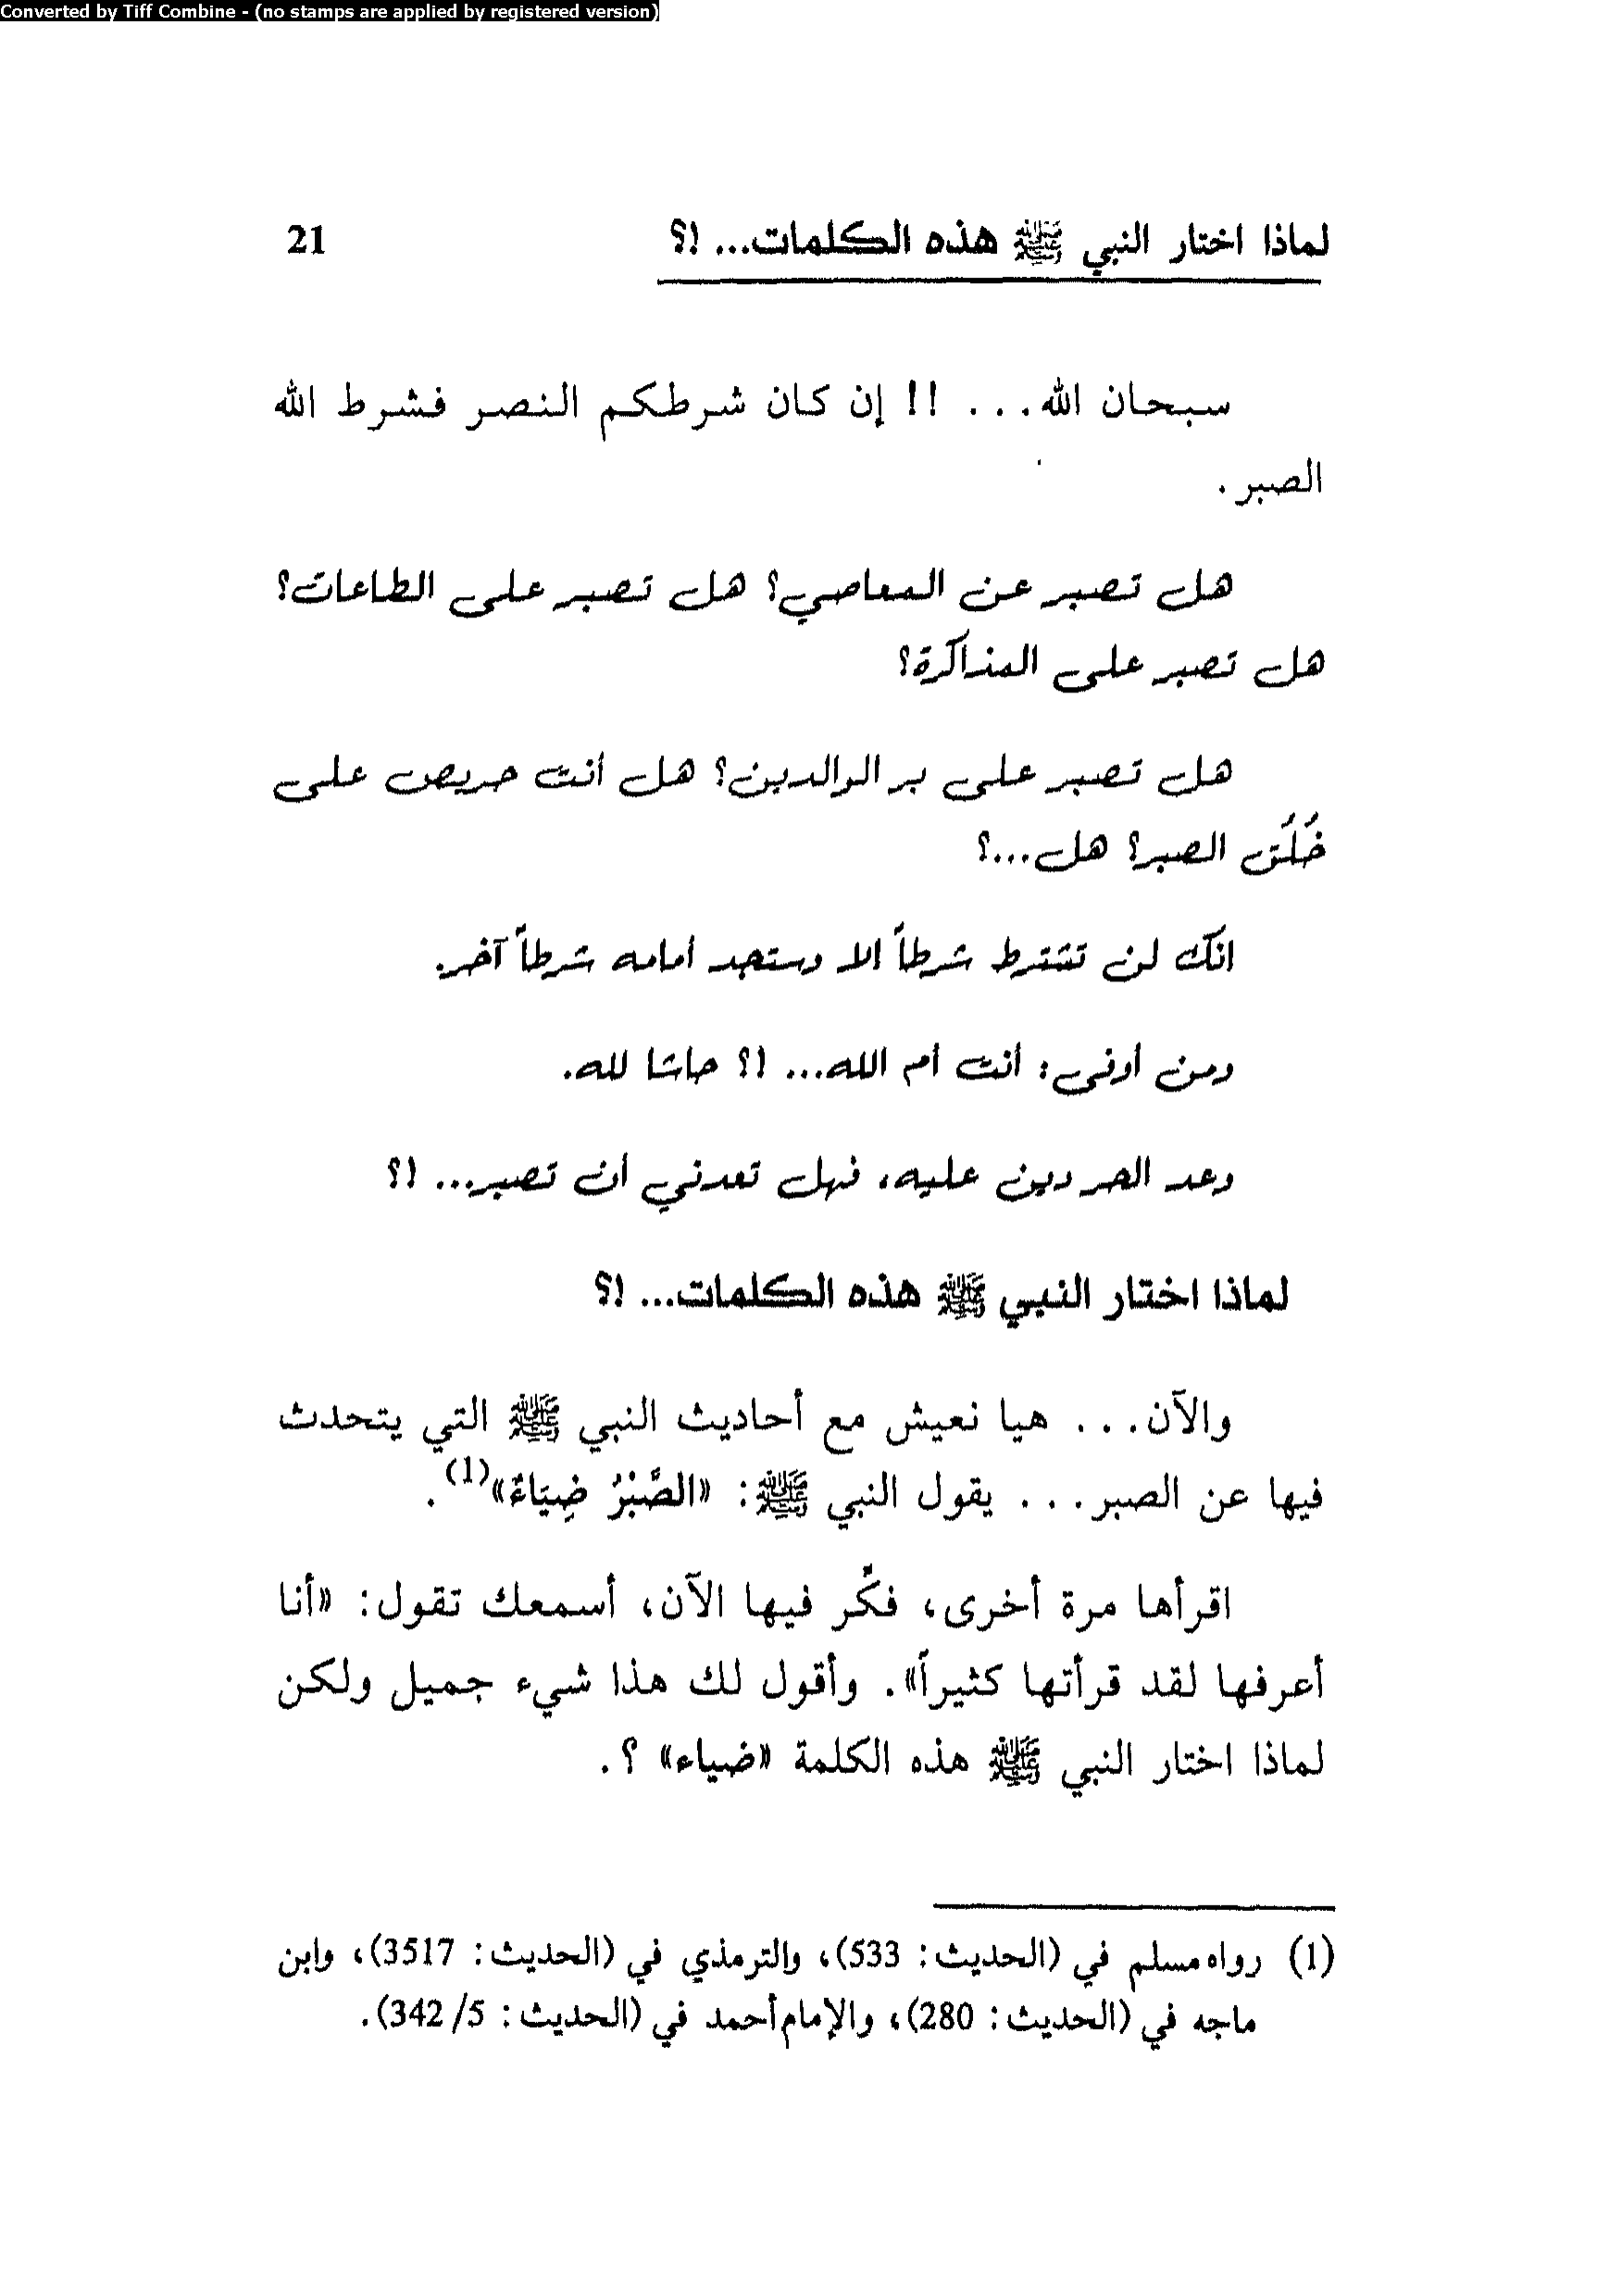 Converted by Tiff Combine - (no stamps are applied by registered version)
لماذا اختار النبي ﷺ هذه الكلمات... !؟ 21
سبحان الله... !! إن كان شرطكم النصر فشرط الله
الصبر.
هل تصبر عن المعاصي؟ هل تصبر على الطاعات؟
هل تصبر على المذاكرة؟
هل تصبر على بر الوالدين؟ هل أنت حريص على
خُلُق الصبر؟ هل...؟
انك لن تشترط شرطاً الا وستجد أمامه شرطاً آخر.
ومن أوفى: أنت أم الله... !؟ حاشا لله.
وعد الحر دين عليه، فهل تعدني أن تصبر... !؟
لماذا اختار النبي ﷺ هذه الكلمات... !؟
والآن... هيا نعيش مع أحاديث النبي ﷺ التي يتحدث
فيها عن الصبر... يقول النبي ﷺ: «الصَّبْرُ ضِيَاءٌ»(1).
اقرأها مرة أخرى، فكّر فيها الآن، أسمعك تقول: «أنا
أعرفها لقد قرأتها كثيراً». وأقول لك هذا شيء جميل ولكن
لماذا اختار النبي ﷺ هذه الكلمة «ضياء» ؟.
(1) رواه مسلم في (الحديث: 533)، والترمذي في (الحديث: 3517)، وابن
ماجه في (الحديث: 280)، والإمام أحمد في (الحديث: 5/ 342).